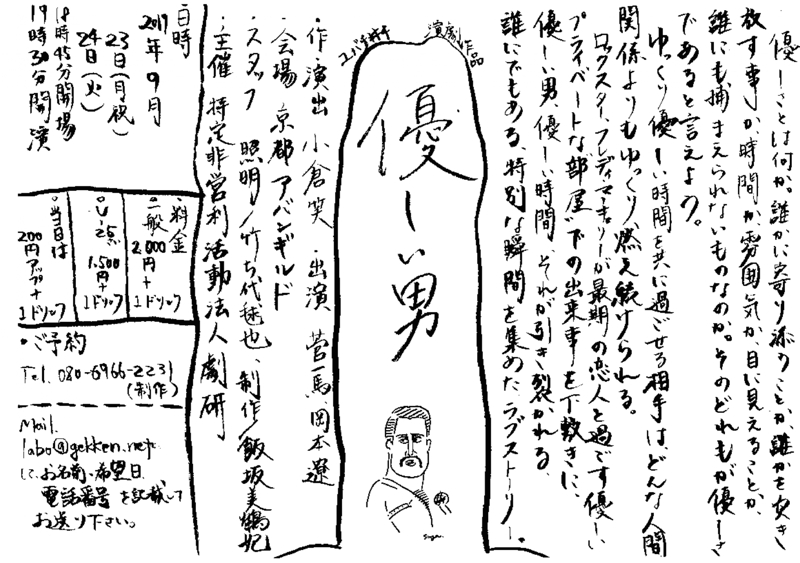 優しさとは何か。誰かに寄り添うことか、誰かを突き
放す事か、時間か、雰囲気か、目に見えることか、
誰にも捕まえられないものなのか。そのどれもが優しさ
であると言えよう。
ゆっくり優しい時間を共に過ごせる相手は、どんな人間
関係よりもゆっくり燃え続けられる。
ロックスター、フレディ・マーキュリーが最期の恋人と過ごす優しい
プライベートな部屋での出来事を下敷きに、
優しい男、優しい時間、それが引き裂かれる、
誰にでもある、特別な瞬間を集めたラブストーリー。
ユバチ
演劇作品
優しい男
・作・演出 小倉笑 ・出演 菅一馬、岡本遼
・会場 京都アバンギルド
・スタッフ 照明/竹ち代毬也、制作/飯坂美鶴妃
・主催 特定非営利活動法人 劇研
・日時
2019年9月
23日(月・祝)
24日(火)
18時45分開場
19時30分開演
・料金
・一般
2,000円+
1ドリンク
・U-25
1,500円+
1ドリンク
・当日は
200円アップ+
1ドリンク
・ご予約
Tel. 080-6966-2231
(制作)
Mail.
labo@gekken.net
に、お名前・希望日、
電話番号を記載して
お送り下さい。